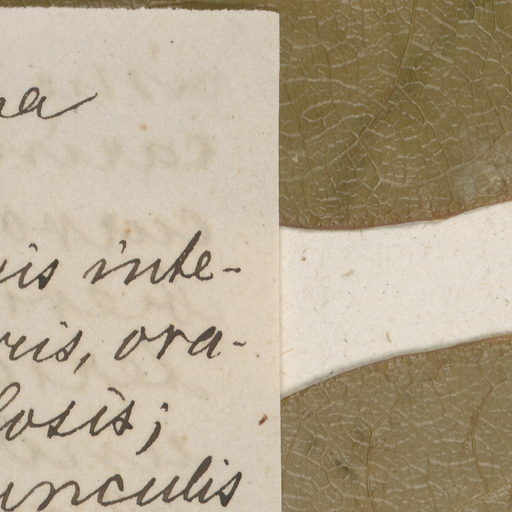 na
is inte-
ris, ora-
losis;
unculis